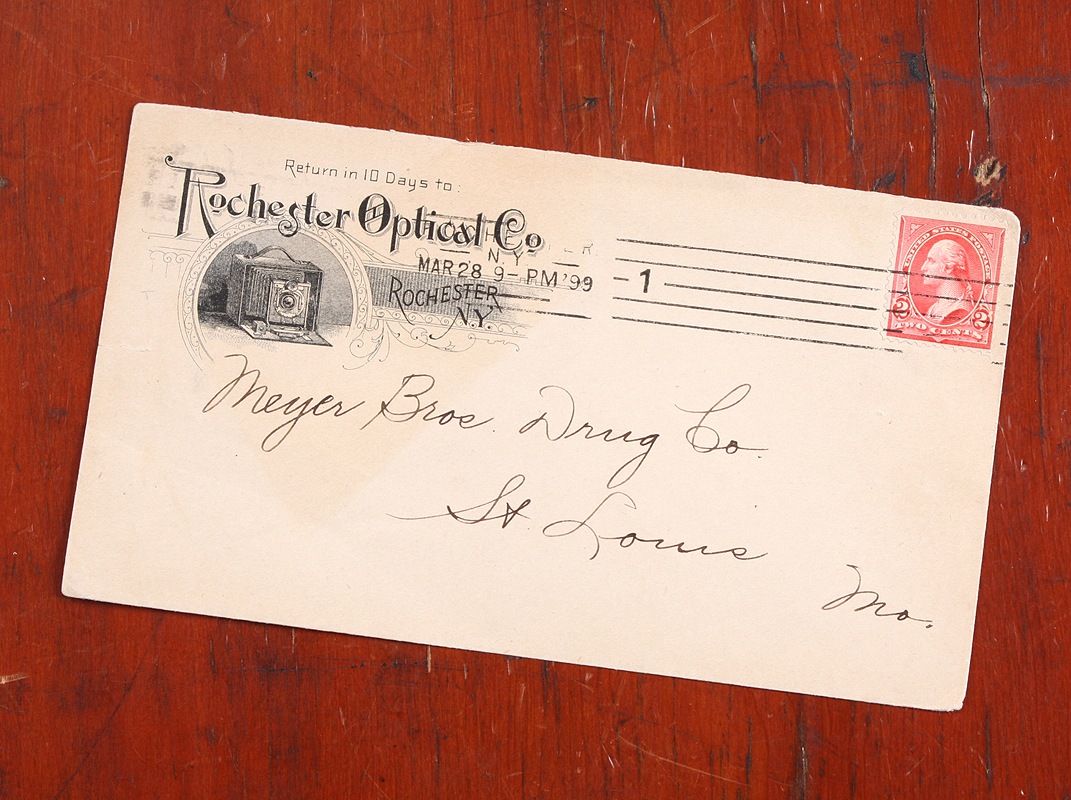 Return in 10 Days to:
Rochester Optical Co
N.Y.
MAR 28 9 - PM '99
1
ROCHESTER
N.Y.
UNITED STATES POSTAGE
2 2
TWO CENTS
Meyer Bros. Drug Co.
St. Louis
Mo.